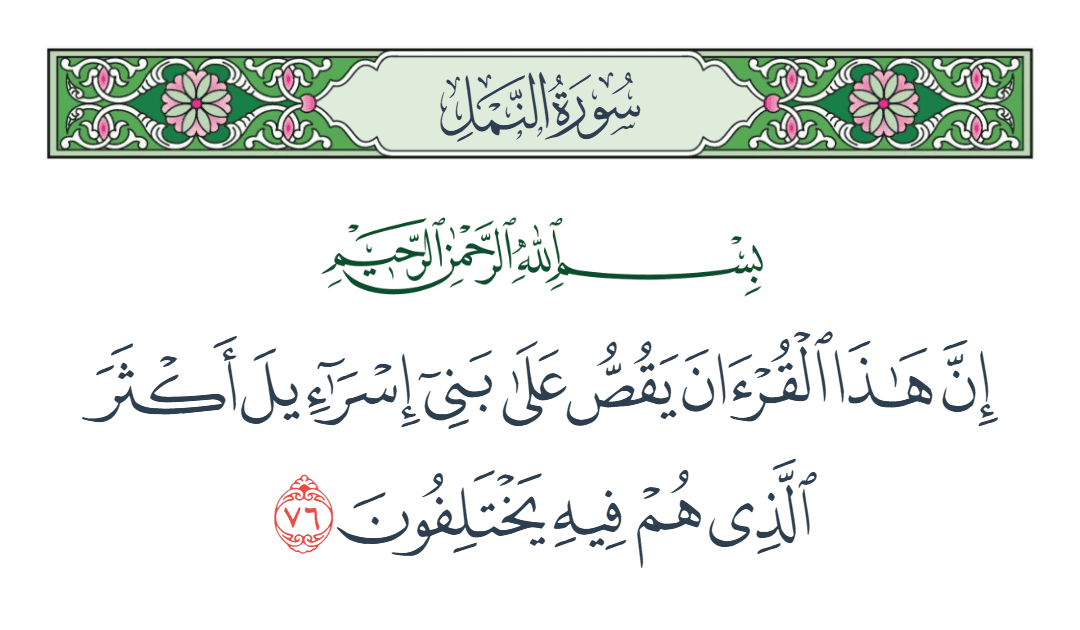 سُورَةُ النَّمْلِ
بِسْمِ ٱللَّهِ ٱلرَّحْمَٰنِ ٱلرَّحِيمِ
إِنَّ هَٰذَا ٱلْقُرْءَانَ يَقُصُّ عَلَىٰ بَنِىٓ إِسْرَٰٓءِيلَ أَكْثَرَ
ٱلَّذِى هُمْ فِيهِ يَخْتَلِفُونَ ٧٦